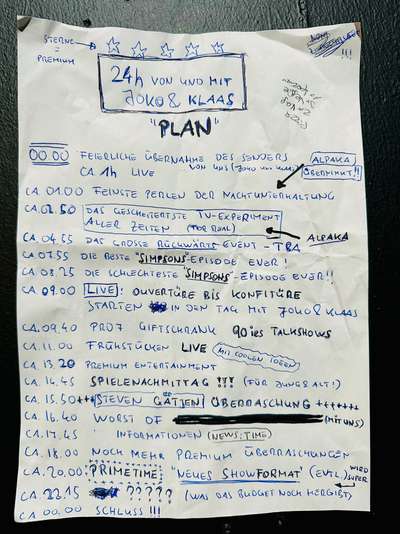 STERNE
=
PREMIUM
24h VON UND MIT
JOKO & KLAAS
"PLAN"
00.00 FEIERLICHE ÜBERNAHME DES SENDERS
CA. 1h LIVE VON UNS (JOKO UND KLAAS)
ALPAKA
ÜBERNIMMT!!
CA. 01.00 FEINSTE PERLEN DER NACHTUNTERHALTUNG
CA. 02.50 DAS GESCHEITERTSTE TV-EXPERIMENT
ALLER ZEITEN (FOR REAL)
CA. 04.55 DAS GROSSE RÜCKWÄRTS EVENT - TRA ALPAKA
CA. 07.55 DIE BESTE "SIMPSONS"-EPISODE EVER!
CA. 08.25 DIE SCHLECHTESTE "SIMPSONS"-EPISODE EVER!!
CA. 09.00 LIVE: OUVERTÜRE BIS KONFITÜRE
STARTEN IN DEN TAG MIT JOKO & KLAAS
CA. 09.40 PRO7 GIFTSCHRANK 90ies TALKSHOWS
CA. 11.00 FRÜHSTÜCKEN LIVE (MIT COOLEN IDEEN)
CA. 13.20 PREMIUM ENTERTAINMENT
CA. 14.45 SPIELENACHMITTAG !!! (FÜR JUNG & ALT!)
CA. 15.50 +++ STEVEN GÄTJEN ÜBERRASCHUNG ++++++
CA. 16.40 WORST OF (MIT UNS)
CA. 17.45 INFORMATIONEN (NEWS:TIME)
CA. 18.00 NOCH MEHR PREMIUM ÜBERRASCHUNGEN
CA. 20.00 PRIMETIME "NEUES SHOWFORMAT" (EVTL) WIRD
SUPER
CA. 22.15 ????? (WAS DAS BUDGET NOCH HERGIBT)
CA. 00.00 SCHLUSS !!!